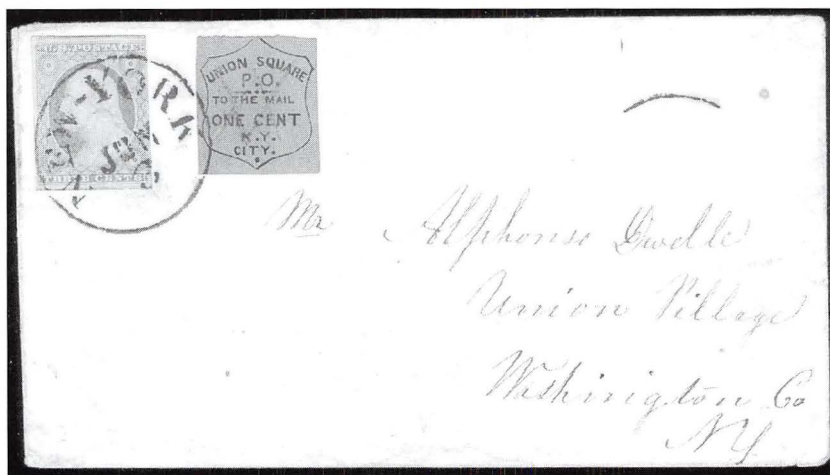 U.S. POSTAGE
THREE CENTS
NEW-YORK
JUN
UNION SQUARE
P.O.
TO THE MAIL
ONE CENT
N.Y.
CITY.
Mr Alphonse Dwelle
Union Village
Washington Co
NY